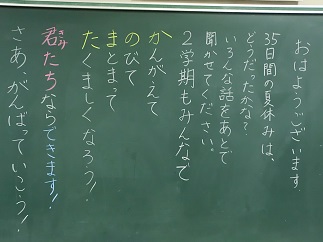 おはようございます
35日間の夏休みは、
どうだったかな？
いろんな話をあとで
聞かせてください。
2学期もみんなで
かんがえて
のびて
まとまって
たくましくなろう！
君たちならできます！
きみ
さあ、がんばっていこう！